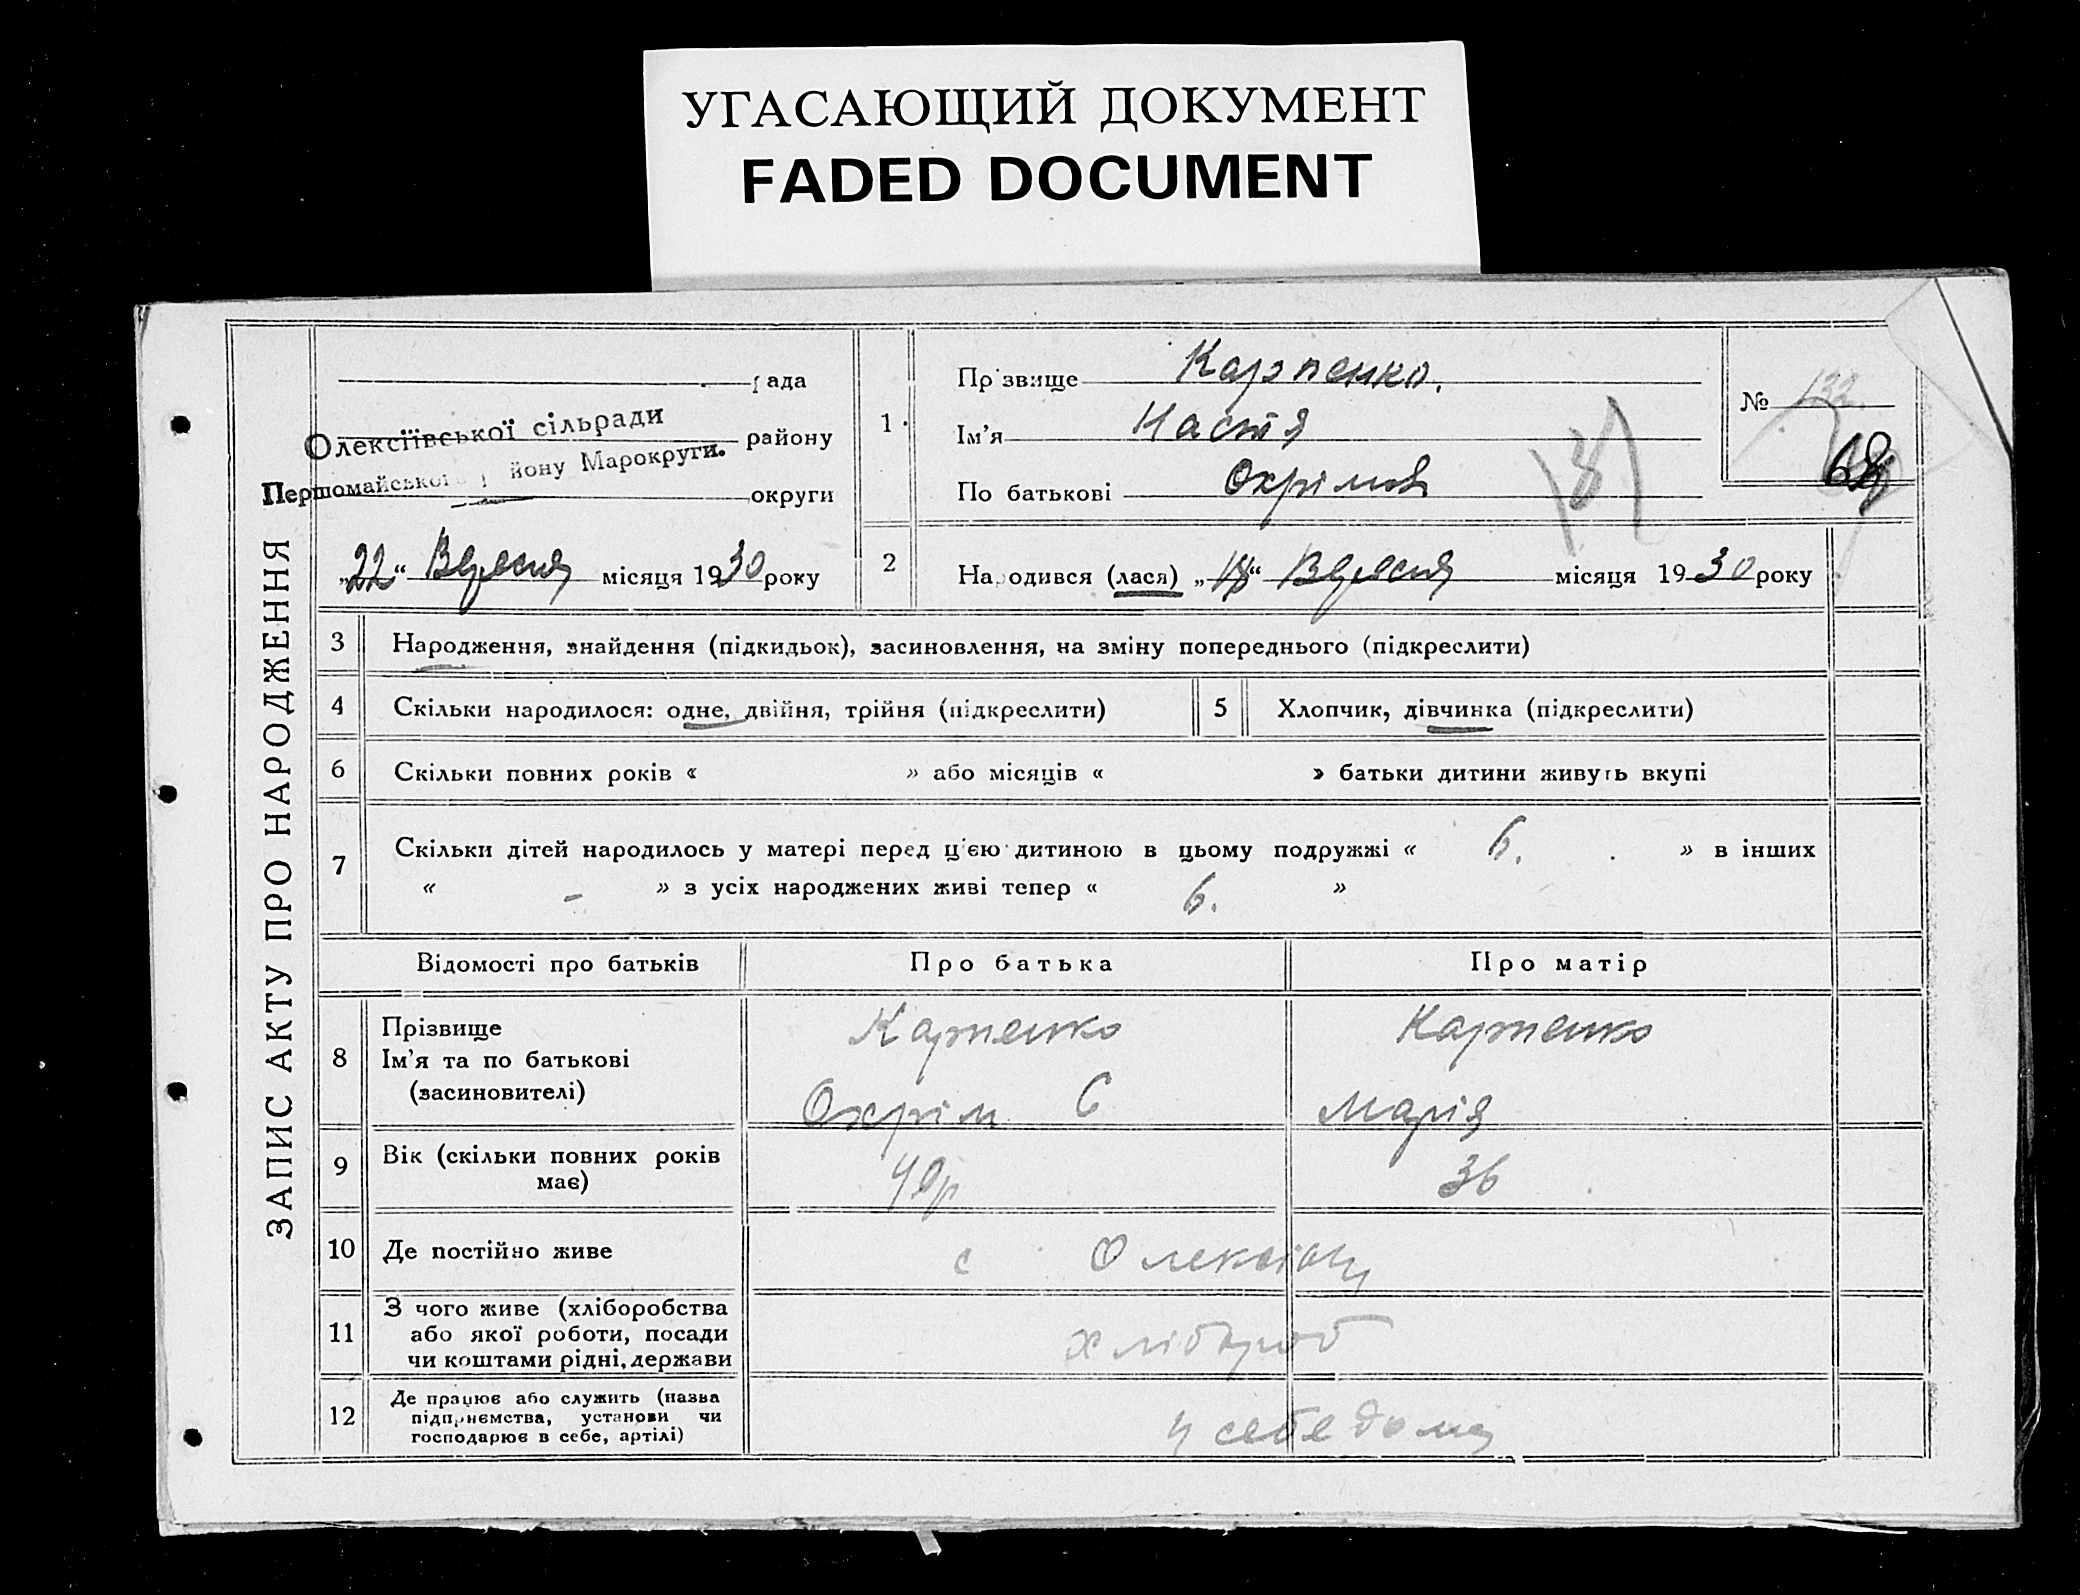 УГАСАЮЩИЙ ДОКУМЕНТ
FADED DOCUMENT
ЗАПИС АКТУ ПРО НАРОДЖЕННЯ
рада
Олексіївської сільради району
Першомайського району Марокруги. округи
„22“ Вересня місяця 1930 року
1. Прізвище Карпенко.
Ім'я Настя
По батькові Охрімов
№ 132
68
2 Народився (лася) „18“ Вересня місяця 1930 року
3 Народження, знайдення (підкидьок), засиновлення, на зміну попереднього (підкреслити)
4 Скільки народилося: одне, двійня, трійня (підкреслити) 5 Хлопчик, дівчинка (підкреслити)
6 Скільки повних років « » або місяців « » батьки дитини живуть вкупі
7 Скільки дітей народилось у матері перед цією дитиною в цьому подружжі « 6. » в інших
« - » з усіх народжених живі тепер « 6. »
Відомості про батьків Про батька Про матір
8 Прізвище Карпенко Карпенко
Ім'я та по батькові
(засиновителі) Охрім С Марія
9 Вік (скільки повних років 40р 36
має)
10 Де постійно живе с Олексіївц
11 З чого живе (хліборобства
або якої роботи, посади хлібороб
чи коштами рідні, держави
12 Де працює або служить (назва
підприємства, установи чи у себе дома
господарює в себе, артілі)